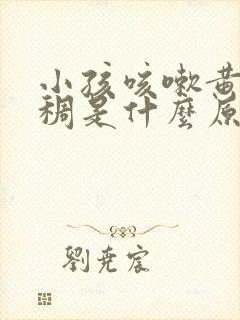 小孩咳嗽黄
稠是什麼原
劉堯宸